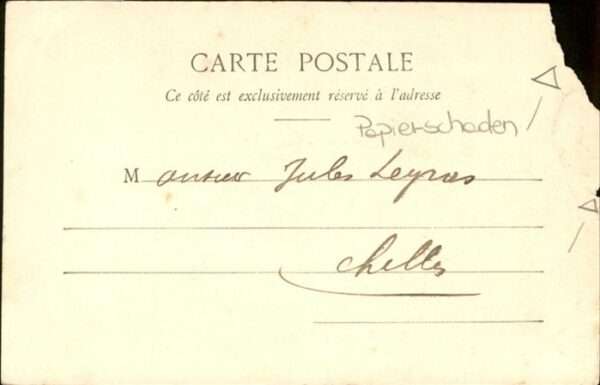 CARTE POSTALE
Ce côté est exclusivement réservé à l'adresse
Papierschaden
Monsieur Jules Leyras
Chelles